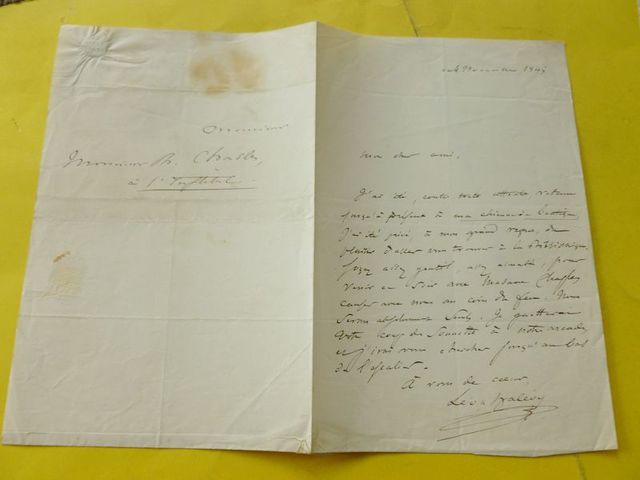 Monsieur
Monsieur Ph. Chasles,
à l'Institut.
1845
Mon cher ami,
J'ai été, contre toute attente, retenu
jusqu'à présent à ma chimère
J'ai été privé, à mon grand regret, du
plaisir d'aller vous trouver à la
Soyez assez gentil, assez aimable, pour
venir ce soir avec Madame Chasles
causer avec nous au coin du feu. Nous
serons absolument seuls. Je guetterai
votre coup de sonnette à notre
et j'irai vous chercher jusqu'au bas
de l'escalier.
À vous de cœur,
Léon Halévy